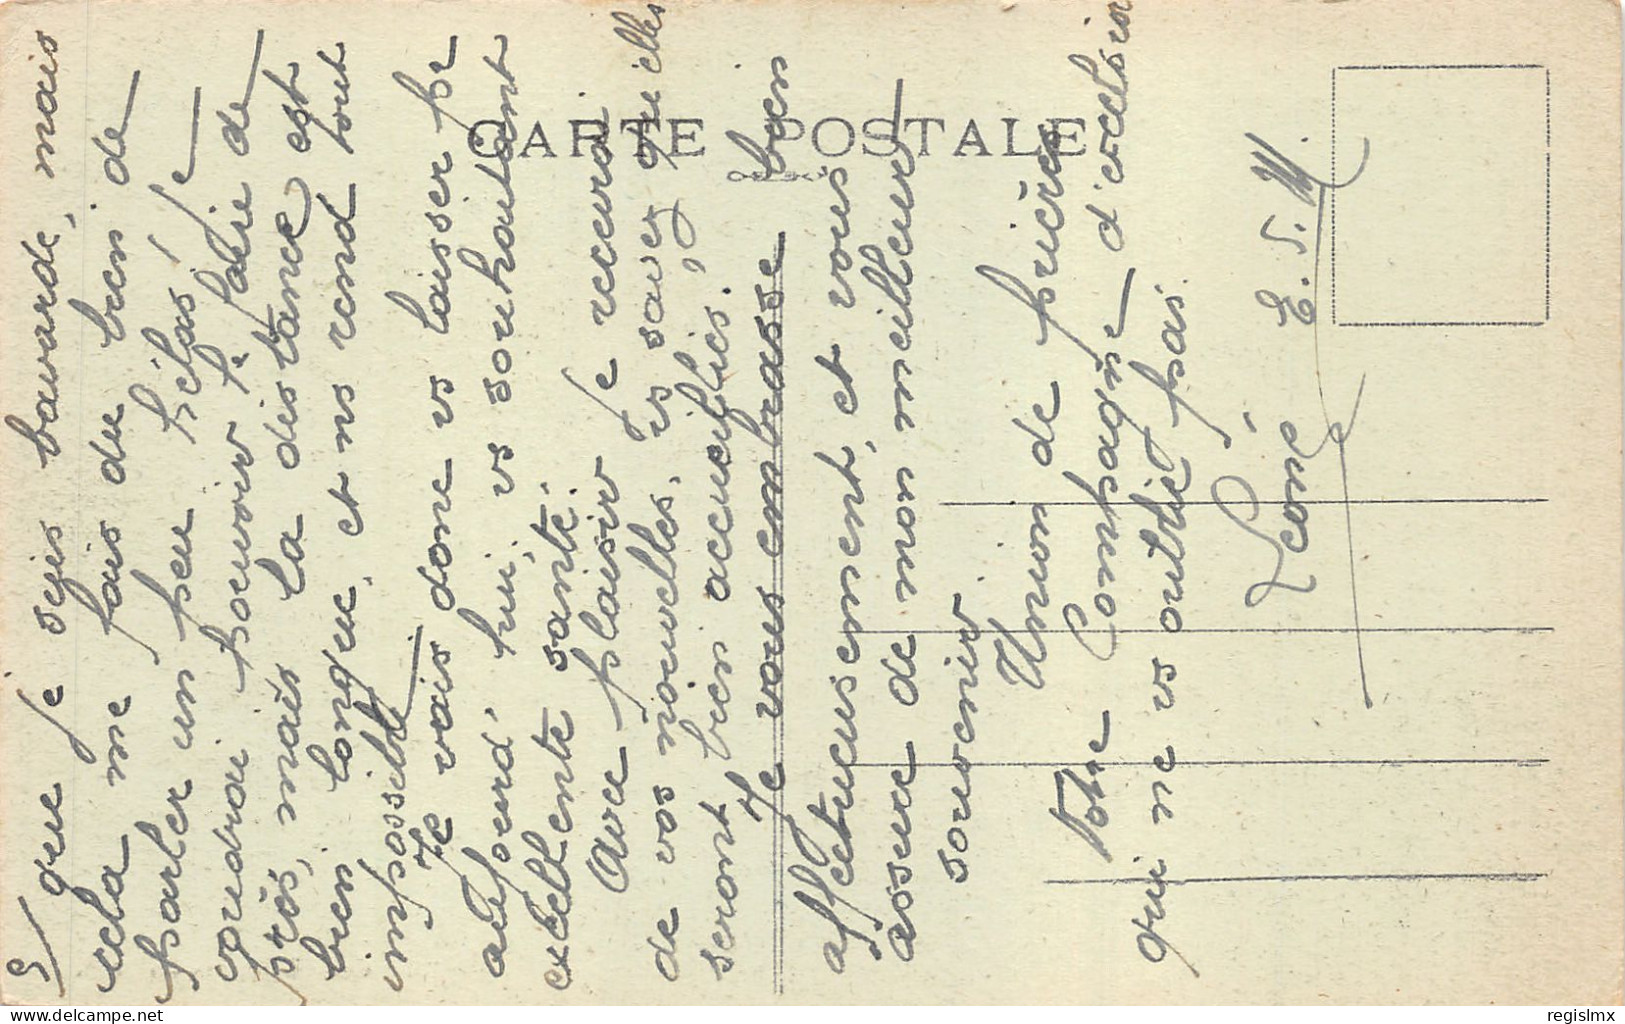 5/
que je sois bavarde, mais
cela me fais du bien de
parler un peu hélas! je
voudrai pouvoir l' faire de
près, mais la distance est
bien longue, et ns rend tout
impossible
Je vais donc vs laisser pr
aujourd'hui, vs souhaitant
excellente santé.
Avec plaisir je recevrai
de vos nouvelles, vs savez qu'elles
seront bien accueillies.
Je vous embrasse bien
affectueusement, et vous
assure de mon meilleur
souvenir
Union de prières
Votre Compagne d'
qui ne vs oublie pas
Léone
E. S. M.
CARTE POSTALE
delcampe.net
regislmx